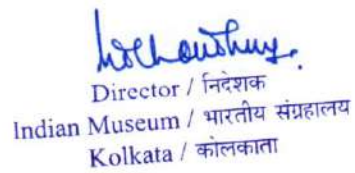 Director / निदेशक
Indian Museum / भारतीय संग्रहालय
Kolkata / कोलकाता